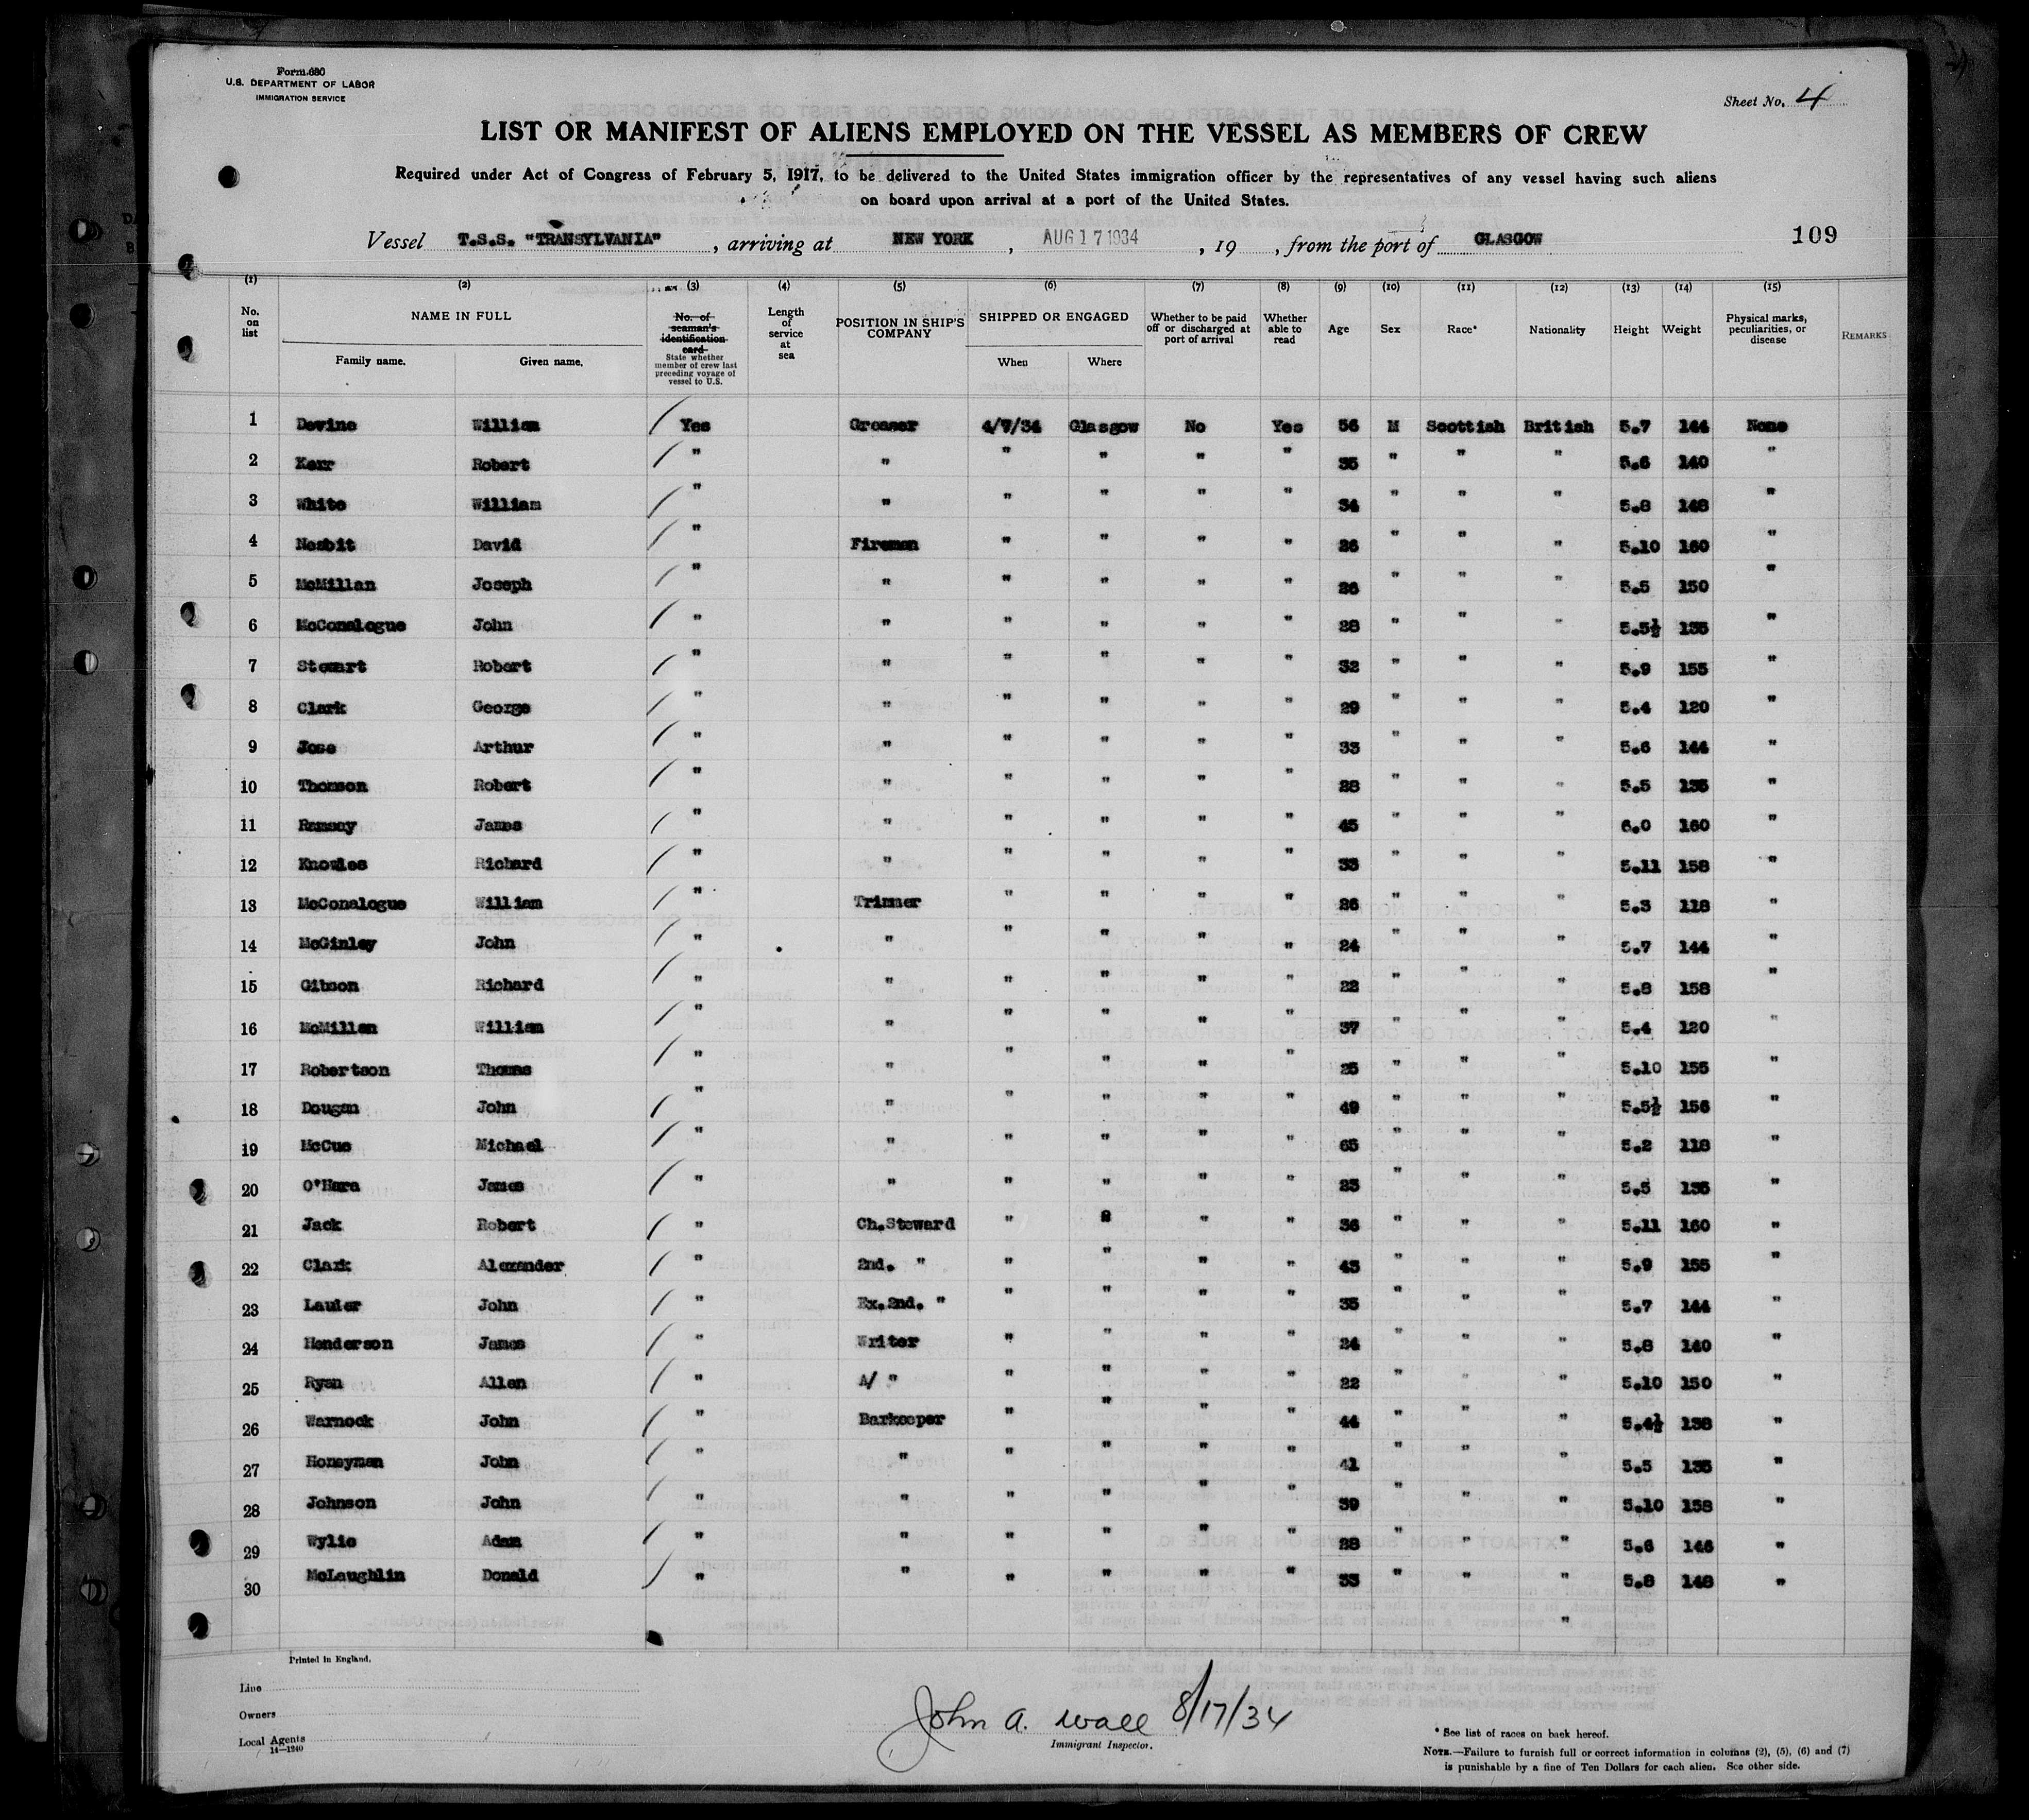 Form 680
U.S. DEPARTMENT OF LABOR
IMMIGRATION SERVICE
Sheet No. 4
LIST OR MANIFEST OF ALIENS EMPLOYED ON THE VESSEL AS MEMBERS OF CREW
Required under Act of Congress of February 5, 1917, to be delivered to the United States immigration officer by the representatives of any vessel having such aliens
on board upon arrival at a port of the United States.
Vessel T.S.S. "TRANSYLVANIA", arriving at NEW YORK, AUG 17 1934, 19, from the port of GLASGOW 109
(1) (2) (3) (4) (5) (6) (7) (8) (9) (10) (11) (12) (13) (14) (15)
No. on list NAME IN FULL Family name. Given name. No. of seaman's identification card State whether member of crew last preceding voyage of vessel to U.S. Length of service at sea POSITION IN SHIP'S COMPANY SHIPPED OR ENGAGED When Where Whether to be paid off or discharged at port of arrival Whether able to read Age Sex Race* Nationality Height Weight Physical marks, peculiarities, or disease REMARKS
1 Devine William / Yes Greaser 4/7/34 Glasgow No Yes 56 M Scottish British 5.7 144 None
2 Kerr Robert / " " " " " " 35 " " " 5.6 140 "
3 White William / " " " " " " 34 " " " 5.8 148 "
4 Nesbit David / " Fireman " " " " 26 " " " 5.10 160 "
5 McMillan Joseph / " " " " " " 26 " " " 5.5 150 "
6 McConalogue John / " " " " " " 28 " " " 5.5½ 135 "
7 Stewart Robert / " " " " " " 32 " " " 5.9 155 "
8 Clark George / " " " " " " 29 " " " 5.4 120 "
9 Jose Arthur / " " " " " " 33 " " " 5.6 144 "
10 Thomson Robert / " " " " " " 28 " " " 5.5 135 "
11 Ramsay James / " " " " " " 45 " " " 6.0 160 "
12 Knowles Richard / " " " " " " 33 " " " 5.11 158 "
13 McConalogue William / " Trimmer " " " " 26 " " " 5.3 118 "
14 McGinley John / " " " " " " 24 " " " 5.7 144 "
15 Gibson Richard / " " " " " " 22 " " " 5.8 158 "
16 McMillan William / " " " " " " 37 " " " 5.4 120 "
17 Robertson Thomas / " " " " " " 25 " " " 5.10 155 "
18 Dougan John / " " " " " " 49 " " " 5.5½ 156 "
19 McCue Michael / " " " " " " 65 " " " 5.2 118 "
20 O'Hara James / " " " " " " 23 " " " 5.5 135 "
21 Jack Robert / " Ch.Steward " " " " 36 " " " 5.11 160 "
22 Clark Alexander / " 2nd. " " " " " 43 " " " 5.9 155 "
23 Lauler John / " Ex.2nd. " " " " " 35 " " " 5.7 144 "
24 Henderson James / " Writer " " " " 24 " " " 5.8 140 "
25 Ryan Allan / " A/ " " " " " 22 " " " 5.10 150 "
26 Warnock John / " Barkeeper " " " " 44 " " " 5.4½ 138 "
27 Honeyman John / " " " " " " 41 " " " 5.5 135 "
28 Johnson John / " " " " " " 39 " " " 5.10 158 "
29 Wylie Adam / " " " " " " 28 " " " 5.6 146 "
30 McLaughlin Donald / " " " " " " 33 " " " 5.8 148 "
"
Printed in England.
Line
Owners
Local Agents
14—1240
John A. Wall 8/17/34
Immigrant Inspector.
* See list of races on back hereof.
NOTE.—Failure to furnish full or correct information in columns (2), (5), (6) and (7)
is punishable by a fine of Ten Dollars for each alien. See other side.